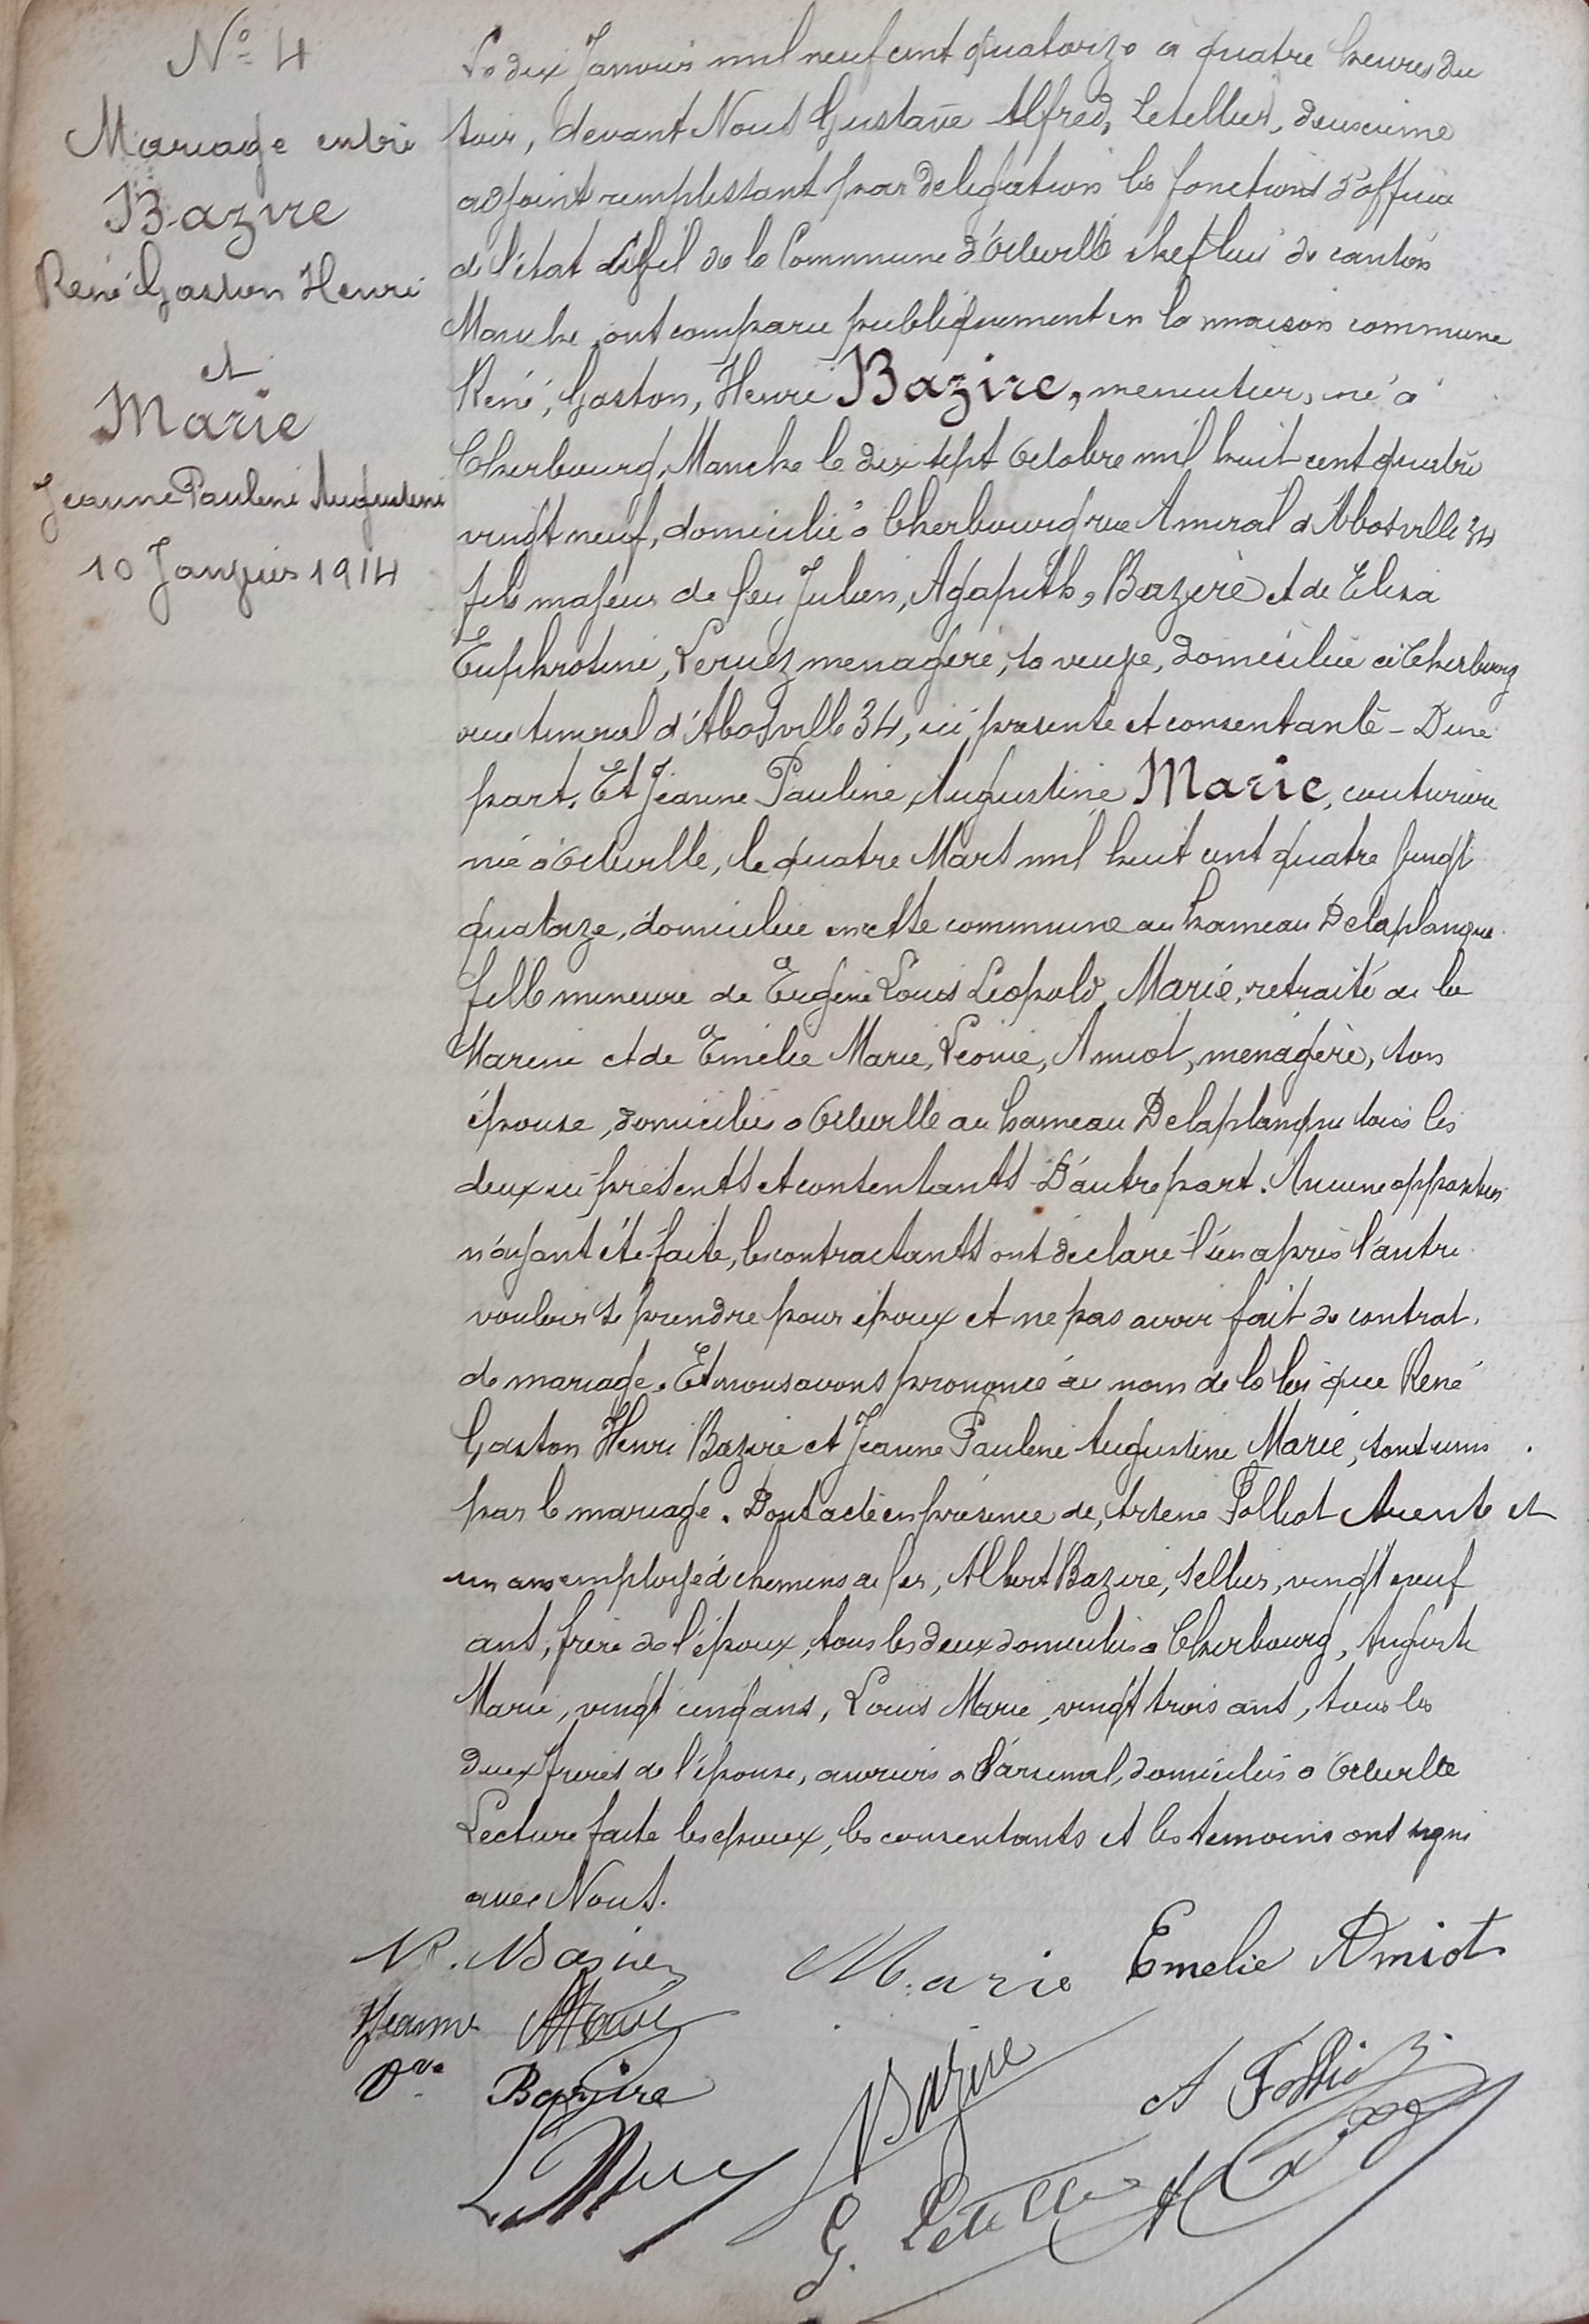 N° 4
Mariage entre
Bazire
René Gaston Henri
et
Marie
Jeanne Pauline Augustine
10 Janvier 1914
Le dix Janvier mil neuf cent quatorze a quatre heures du
soir, devant Nous Gustave Alfred, Letellier, deuxieme
adjoint remplissant par delegation les fonctions d'officier
de l'état civil de la Commune d'Octeville chef lieu de canton
Manche, ont comparu publiquement en la maison commune
René, Gaston, Henri Bazire, menuisier, né à
Cherbourg, Manche le dix sept Octobre mil huit cent quatre
vingt neuf, domicilié à Cherbourg rue Amiral d'Abosville 34
fils majeur de feu Julien, Agapith, Bazire et de Elisa
Euphrosine, Leruez menagère, sa veuve, domiciliée à Cherbourg
rue Amiral d'Abosville 34, ici présente et consentante - D'une
part. Et Jeanne Pauline, Augustine Marie, couturiere
née à Octeville, le quatre Mars mil huit cent quatre vingt
quatorze, domiciliée en cette commune au hameau Delaplanque
fille mineure de Eugène Louis Léopold Marie, retraité de la
Marine et de Emélie Marie, Léonie, Amiot, menagère, son
épouse, domiciliés à Octeville au hameau Delaplanque tous les
deux ici présents et consentants D'autre part. Aucune opposition
n'ayant été faite, les contractants ont déclaré l'un après l'autre
vouloir se prendre pour époux et ne pas avoir fait de contrat
de mariage. Et nous avons prononcé au nom de la loi que René
Gaston Henri Bazire et Jeanne Pauline Augustine Marie, sont unis
par le mariage. Dont acte en présence de, Arsene Folliot trente et
un ans employé de chemins de fer, Albert Bazire, sellier, vingt neuf
ans, frère de l'époux, tous les deux domiciliés à Cherbourg, Auguste
Marie, vingt cinq ans, Louis Marie, vingt trois ans, tous les
deux frères de l'épouse, ouvriers à l'arsenal, domiciliés à Octeville
Lecture faite les époux, les consentants et les temoins ont signé
avec Nous.
R. Bazire Marie Emelie Amiot
Jeanne Marie
Vve Bazire Bazire A Folliot
L. Marie G. Letellier